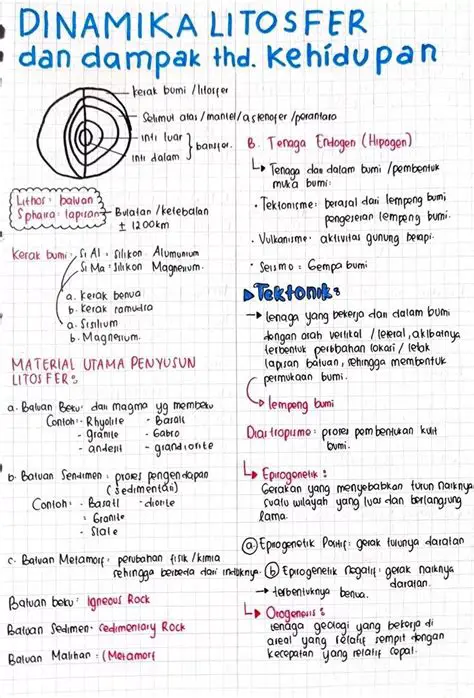 DINAMIKA LITOSFER
dan dampak thd. Kehidupan
kerak bumi /litosfer
Selimut atas /mantel/astenofer /perantara
inti luar
inti dalam
barisfer.
Lithos: batuan
Sphaira: lapisan
Bulatan /ketebalan
± 1200km
Kerak bumi: Si Al : Silikon Alumunium
Si Ma : Silikon Magnesium.
a. kerak benua
b. kerak samudra
a. Sisilium
b. Magnesium.
MATERIAL UTAMA PENYUSUN
LITOSFER:
a. Batuan Beku: dari magma yg membeku
Contoh: - Rhyolite - Basalt
- granite - Gabro
- andesit - grandiorite
b. Batuan Sendimen: proses pengendapan
(sedimentasi)
Contoh: - Basalt - diorite
: Granite
- Slate
c. Batuan Metamorf: perubahan fisik /kimia
sehingga berbeda dari induknya.
Batuan beku: Igneous Rock
Batuan Sedimen: Sedimentary Rock
Batuan Malihan: (Metamorf
B. Tenaga Endogen (Hipogen)
Tenaga dari dalam bumi /pembentuk
muka bumi:
• Tektonisme: berasal dari lempong bumi
pergeseran lempong bumi.
• Vulkanisme: aktivitas gunung berapi.
• Seismo: Gempa bumi
Tektonik:
tenaga yang bekerja dari dalam bumi
dengan arah vertikal / lateral, akibatnya
terbentuk perubahan lokasi / letak
lapisan batuan, sehingga membentuk
permukaan bumi.
lempong bumi
Diastropisme: proses pembentukan kulit
bumi.
Epirogenetik:
Gerakan yang menyebabkan turun naiknya
suatu wilayah yang luas dan berlangsung
lama.
(a) Epirogenetik Positif: gerak turunya daratan
(b) Epirogenetik negatif: gerak naiknya
daratan.
→ terbentuknya benua.
Orogenesis:
tenaga geologi yang bekerja di
areal yang relatif sempit dengan
kecepatan yang relatif cepat.